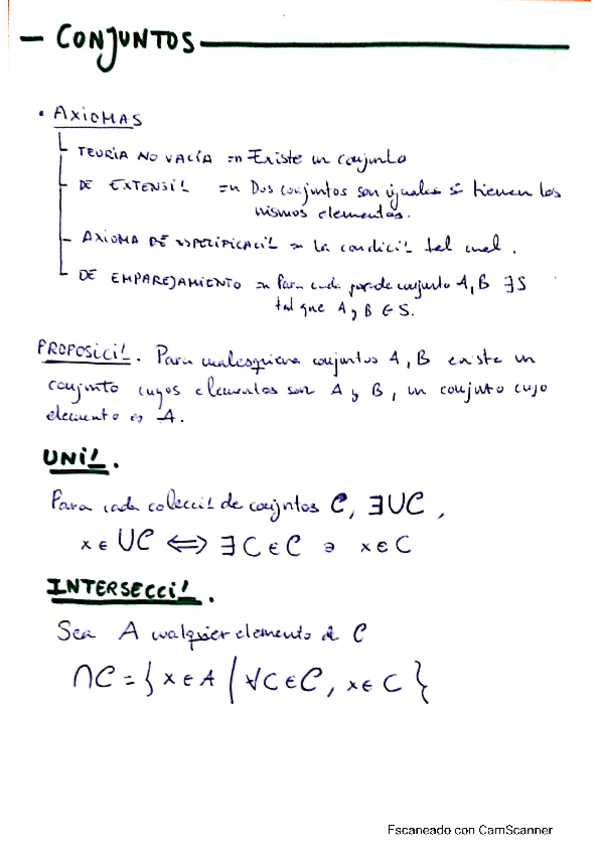 — CONJUNTOS
• AXIOMAS
TEORIA NO VACÍA =n Existe un conjunto
DE EXTENSI! =n Dos conjuntos son iguales si tienen los
mismos elementos.
AXIOMA DE ESPECIFICACI! =n la condici! tal cual.
DE EMPAREJAMIENTO =n Para cada par de conjunto A, B ∃S
tal que A y B ∈ S.
PROPOSICI!. Para cualesquiera conjuntos A, B existe un
conjunto cuyos elementos son A y B, un conjunto cuyo
elemento es A.
UNI!.
Para cada colecci! de conjntos C, ∃UC,
x ∈ UC ⟺ ∃ C ∈ C ∋ x ∈ C
INTERSECCI!.
Sea A cualquier elemento de C
∩C = { x ∈ A / ∀C ∈ C, x ∈ C }
Escaneado con CamScanner